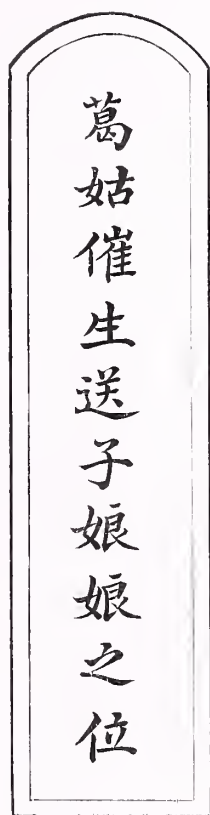 葛姑催生送子娘娘之位